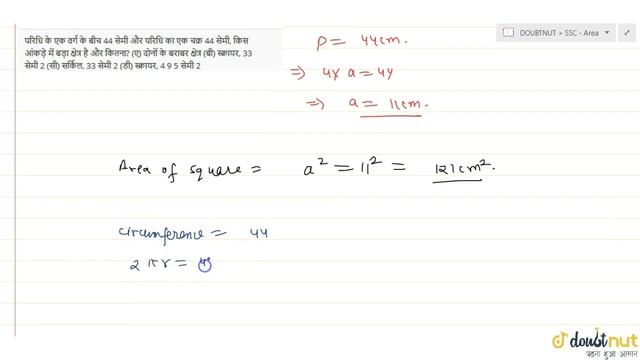 परिधि के एक वर्ग के बीच 44 सेमी और परिधि का एक चक्र 44 सेमी, किस
आंकड़े में बड़ा क्षेत्र है और कितना? (ए) दोनों के बराबर क्षेत्र (बी) स्क्वायर, 33
सेमी 2 (सी) सर्किल, 33 सेमी 2 (डी) स्क्वायर, 4 9 5 सेमी 2
DOUBTNUT > SSC - Area
P = 44cm.
⇒ 4 x a = 44
⇒ a = 11cm.
Area of square = a² = 11² = 121cm².
circumference = 44
2πr = 4
doubtnut
पढ़ना हुआ आसान